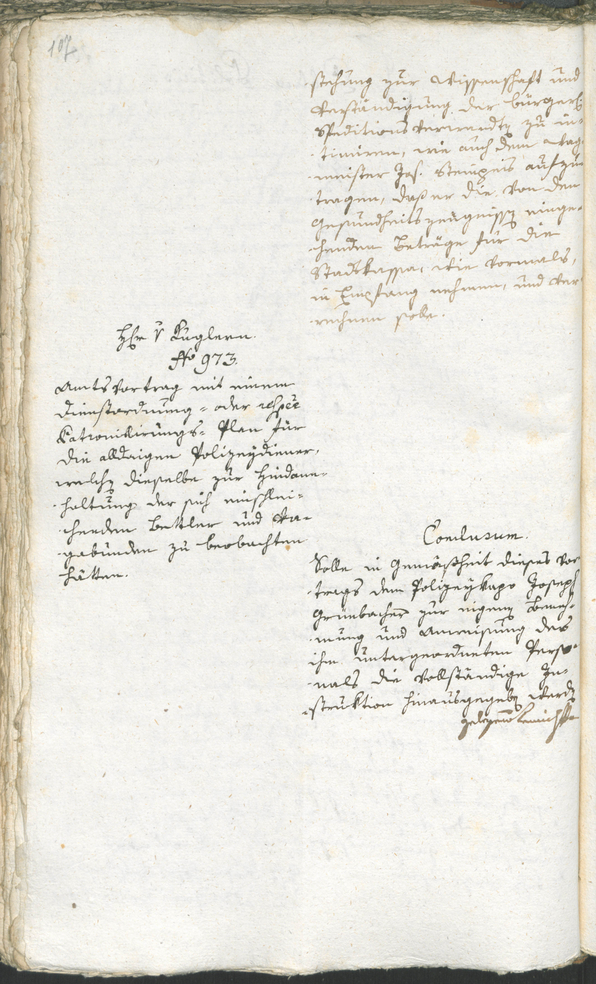 107
stehung zur Wissenschaft und
Verständigung der bürgerl:
Speditions Verwandtn zu in-
timiren, wie auch dem Wag-
meister Jos. Stempeis aufzu
tragen, daß er die von den
Gesundheitszeugnissn einge-
henden Beträge für die
Stadtkassa, wie vormals,
in Empfang nehmen, und ver-
rechnen solle.
Hr v Kuglern.
No 973.
Amtsvortrag mit einem
Dienstordnung- oder respve
Patrouillirungs- Plan für
die alldaigen Polizeydiener,
welchn dieselbe zur Hindan-
haltung der sich einschlei-
chenden Bettler und Va-
gabunden zu beobachten
hätten.
Conclusum.
Solle in Gemäßheit dieses Vor
trags dem Polizeykapo Joseph
Grünbacher zur eigenen Beneh-
mung und Anweisung des
ihm untergeordneten Perso-
nals die vollständige In-
struktion hinausgegebn werdn